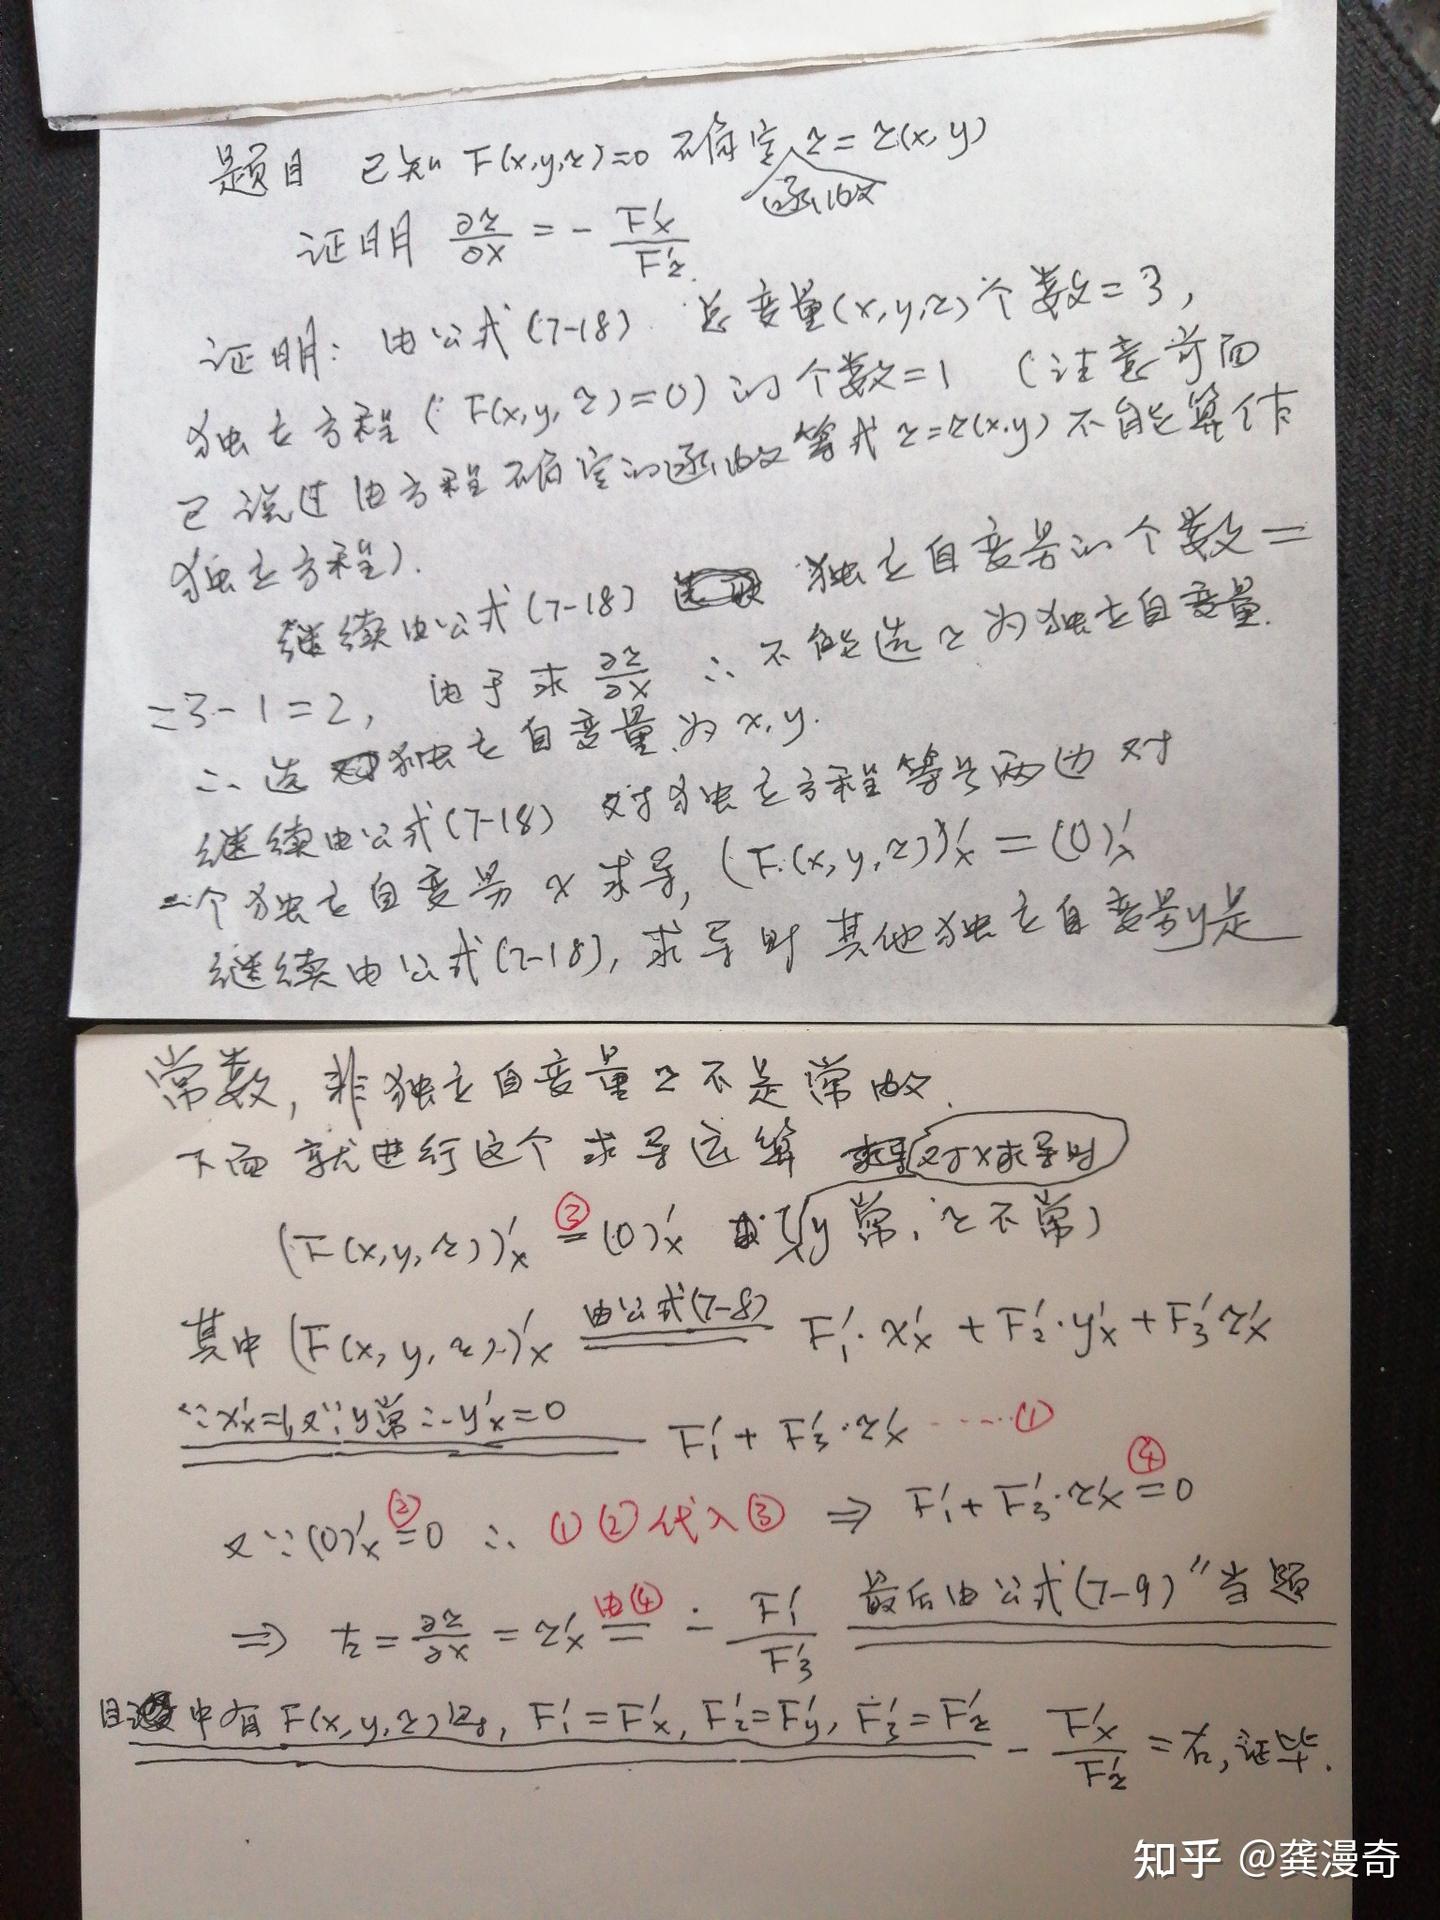 题目 已知 F(x,y,z)=0 确定 z=z(x,y)
函数
证明 ∂z/∂x = - F'x/F'z
证明: 由公式(7-18) 总变量(x,y,z)个数=3,
独立方程(F(x,y,z)=0)的个数=1 (注意前面
已说过由方程确定的函数等式z=z(x,y)不能算作
独立方程).
继续由公式(7-18) 独立自变量的个数=
=3-1=2, 由于求 ∂z/∂x ∴不能选z为独立自变量.
∴选独立自变量为x,y.
继续由公式(7-18) 对独立方程等号两边对
一个独立自变量x求导, (F(x,y,z))'x=(0)'x
继续由公式(7-18), 求导时其他独立自变量y是
常数, 非独立自变量z不是常数.
下面就进行这个求导运算 对x求导时
(F(x,y,z))'x =③ (0)'x (y常, z不常)
其中 (F(x,y,z))'x 由公式(7-8) F'1·x'x+F'2·y'x+F'3 z'x
∵x'x=1,又∵y常∴y'x=0 F'1+F'3·z'x ……①
又∵(0)'x =② 0 ∴ ①②代入③ ⇒ F'1+F'3·z'x =④ 0
⇒ 左=∂z/∂x=z'x 由④ = - F'1/F'3 最后由公式(7-9)"当题
目中有F(x,y,z)时, F'1=F'x, F'2=F'y, F'3=F'z - F'x/F'z =右,证毕.
知乎 @龚漫奇